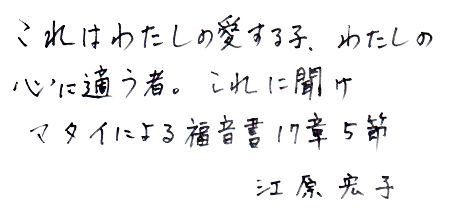 これはわたしの愛する子、わたしの
心に適う者。これに聞け
マタイによる福音書17章5節
江原宏子